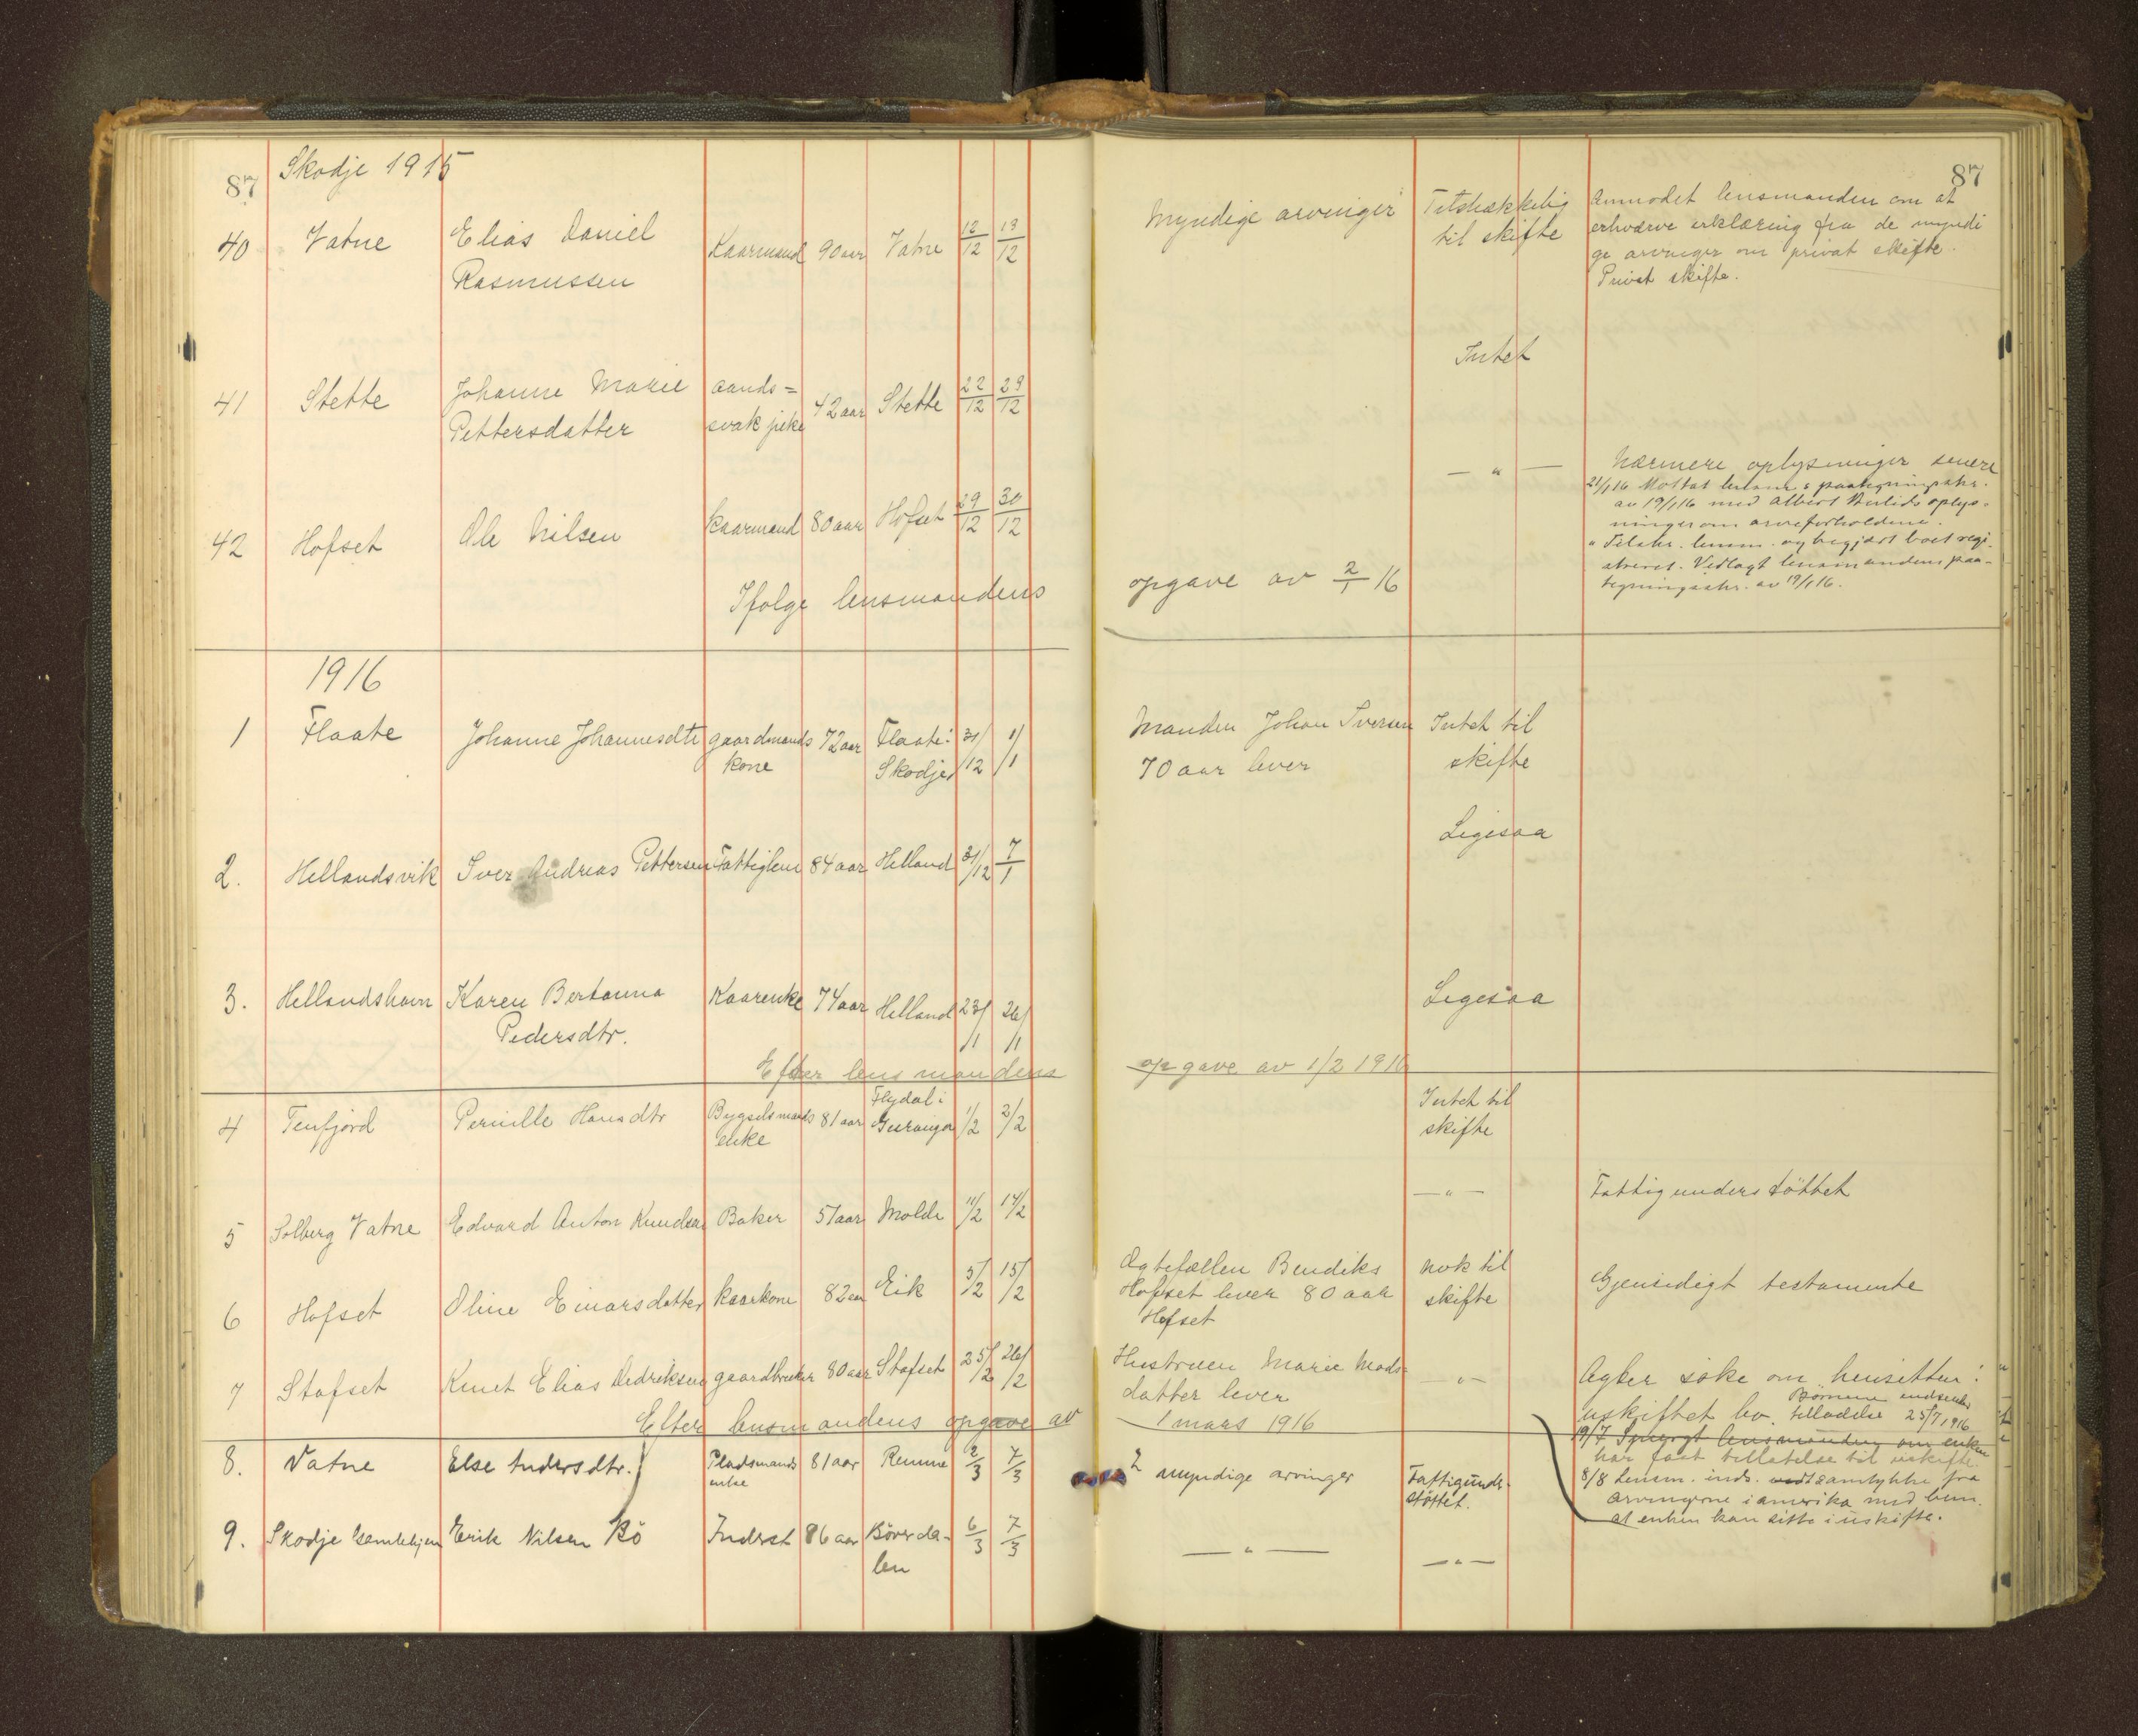 87
Skodje 1915
40 Vatne Elias Daniel Rasmussen Kaarmand 90 aar Vatne 12/12 13/12
41 Stette Johanne Marie Pettersdatter aands= svak pike 42 aar Stette 22/12 29/12
42 Hofset Ole Nilsen kaarmand 80 aar Hofset 29/12 30/12
Ifølge lensmandens
1916
1 Flaate Johanne Johannesdtr gaardmands kone 72 aar Flaate i Skodje 31/12 1/1
2. Hellandsvik Iver Andreas Pettersen Fattiglem 84 aar Helland 31/12 7/1
3. Hellandshavn Karen Bertanna Pedersdtr. Kaarenke 74 aar Helland 23/1 26/1
Efter lensmandens
4 Tenfjord Pernille Hansdtr Bygselsmands enke 81 aar Flydal i Geiranger 1/2 2/2
5 Solberg Vatne Edvard Anton Knudsen Baker 51 aar Molde 11/2 14/2
6 Hofset Oline Einarsdatter kaarkone 82 aar Eik 5/2 15/2
7 Stafset Knut Elias Dedriksen gaardbruker 80 aar Stafset 25/2 26/2
Efter lensmandens opgave av
8. Vatne Else Andersdtr. Pladsmands enke 81 aar Remme 2/3 7/3
9. Skodje Gamlehjem Erik Nilsen Bö Inderst 86 aar Böverda- len 6/3 7/3
87
Myndige arvinger
Tilstrækkelig
til skifte
Anmodet lensmanden om at
erhværve erklæring fra de myndi
ge arvinger om privat skifte.
Privat skifte.
Intet
— " —
Nærmere oplysninger senere
21/1 16 Mottat lensm.s paategningsskr.
av 19/1 16 med Albert oplys-
ninger om arveforholdene.
" Tilskr. lensm. og begjært boet regi-
streret. Vedlagt lensmandens paa-
tegningsskr. av 19/1 16.
opgave av 2/1 16
Manden Johan Iversen
70 aar lever
Intet til
skifte
Ligesaa
Ligesaa
opgave av 1/2 1916
Intet til
skifte
— " —
Fattigunderstöttet
Ægtefællen Bendiks
Hofset lever 80 aar
Hofset
nok til
skifte
Gjensidigt testamente
Hustruen Marie Mads-
datter lever
— " —
Agter söke om hensitten i
uskiftet bo. Börnene indsendt
tilladelse 25/7 1916
1 mars 1916
19/7 Spurgt lensmanden om enken
har faat tillatelse til uskifte.
8/8 Lensm. inds. samtykke fra
arvingerne i amerika med bem.
at enken kan sitte i uskifte.
2 myndige arvinger
Fattigunder-
støttet.
— " —
— " —